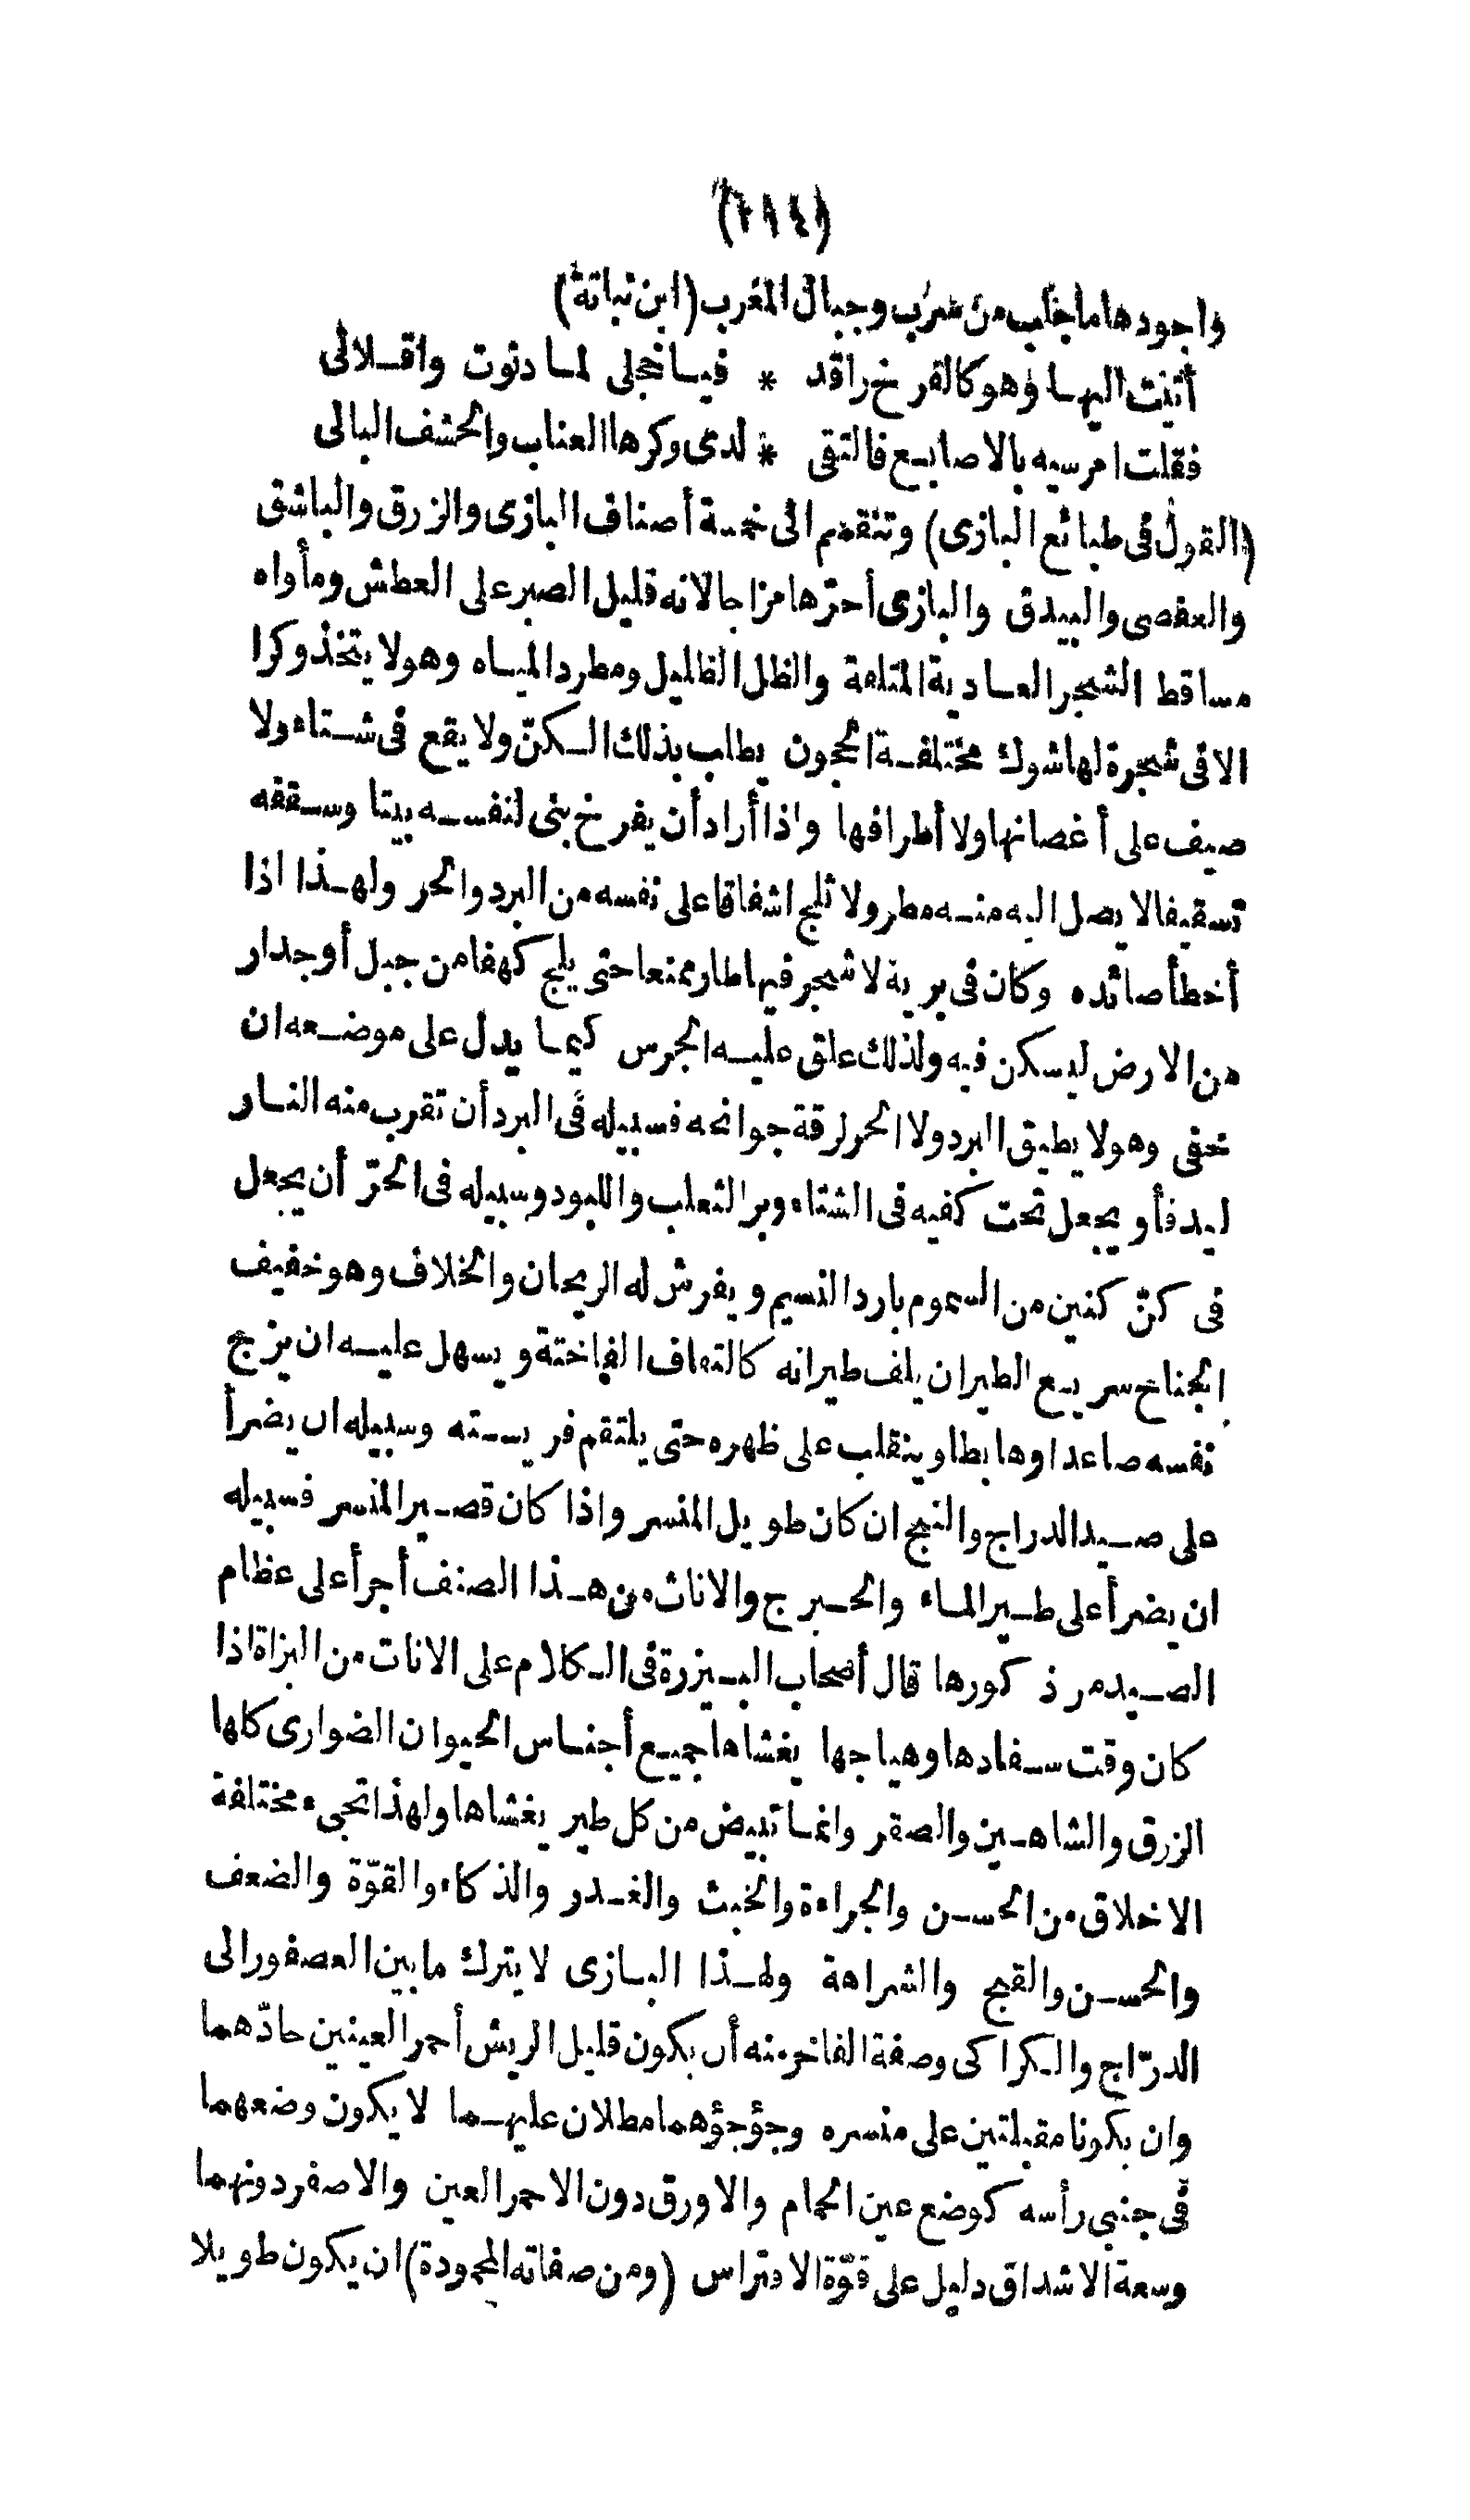 واجودها ما جلب من سرب وجبال المغرب (ابن نباتة)
أتيت اليها وهو كالفرخ راقد * فيا خجلى لما دنوت واقلالى
فقلت امرسيه بالاصابع فالتقى * لدى وكرها العناب والحشف البالى
(القول فى طبائع البازى) وتنقسم الى خمسة أصناف البازى والزرق والباشق
والعفصى والبيدق والبازى أحرّها مزاجا لانه قليل الصبر على العطش ومأواه
مساقط الشجر العادية الملتفة والظل الظليل ومطرد المياه وهو لا يتخذ وكرا
الا فى شجرة لها شوك مختلفة الحجون يطلب بذلك الكنّ ولا يقع فى شتاء ولا
صيف على أغصانها ولا أطرافها واذا أراد أن يفرخ بنى لنفسه بيتا وسقفه
تسقيفا لا يصل اليه منه مطر ولا ثلج اشفاقا على نفسه من البرد والحر ولهذا اذا
أخطأ صائده وكان فى برية لا شجر فيها طار ممنعا حتى يلج كهفا من جبل أو جدار
من الارض ليسكن فيه ولذلك علق عليه الجرس كيما يدل على موضعه ان
خفى وهو لا يطيق البرد ولا الحر لرقة جوانحه فسبيله فى البرد أن تقرب منه النار
ليدفأ ويجعل تحت كفيه فى الشتاء وبر الثعلب واللبود وسبيله فى الحرّ أن يجعل
فى كنّ كنين من السموم بارد النسيم ويفرش له الريحان والخلاف وهو خفيف
الجناح سريع الطيران يلف طيرانه كالتفاف الفاختة ويسهل عليه ان يزج
نفسه صاعدا وهابطا وينقلب على ظهره حتى يلتقم فريسته وسبيله ان يضرأ
على صيد الدراج والنجج ان كان طويل المنسر واذا كان قصير المنسر فسبيله
ان يضرأ على طير الماء والحبرج والاناث من هذا الصنف أجرأ على عظام
الصيد من ذكورها قال أصحاب البيزرة فى الكلام على الاناث من البزاة اذا
كان وقت سفادها وهياجها يغشاها جميع أجناس الحيوان الضوارى كلها
الزرق والشاهين والصقر وانما تبيض من كل طير يغشاها ولهذا تجىء مختلفة
الاخلاق من الحسن والجراءة والخبث والغدر والذكاء والقوّة والضعف
والحسن والقبح والشراهة ولهذا البازى لا يترك ما بين العصفور الى
الدرّاج والكراكى وصفة الفاخر منه أن يكون قليل الريش أحمر العينين حادّهما
وان يكونا مقبلتين على منسره وجؤجؤهما مطلان عليهما لا يكون وضعهما
فى جنبى رأسه كوضع عين الحمام والاورق دون الاحمر العين والاصفر دونهما
وسعة الاشداق دليل على قوّة الافتراس (ومن صفاته المحمودة) ان يكون طويلا